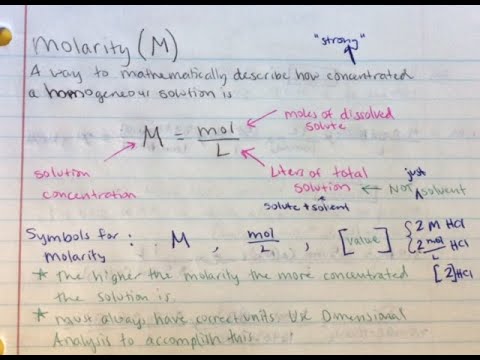 Molarity (M)
"strong"
A way to mathematically describe how concentrated
a homogeneous solution is
M = mol
L
moles of dissolved
solute
solution
concentration
Liters of total
solution
solute + solvent
← NOT just solvent
Symbols for : M , mol/L , [value] { 2 M HCl
molarity
2 mol/L HCl
[2] HCl
* the higher the molarity the more concentrated
the solution is.
* must always have correct units. Use Dimensional
Analysis to accomplish this.